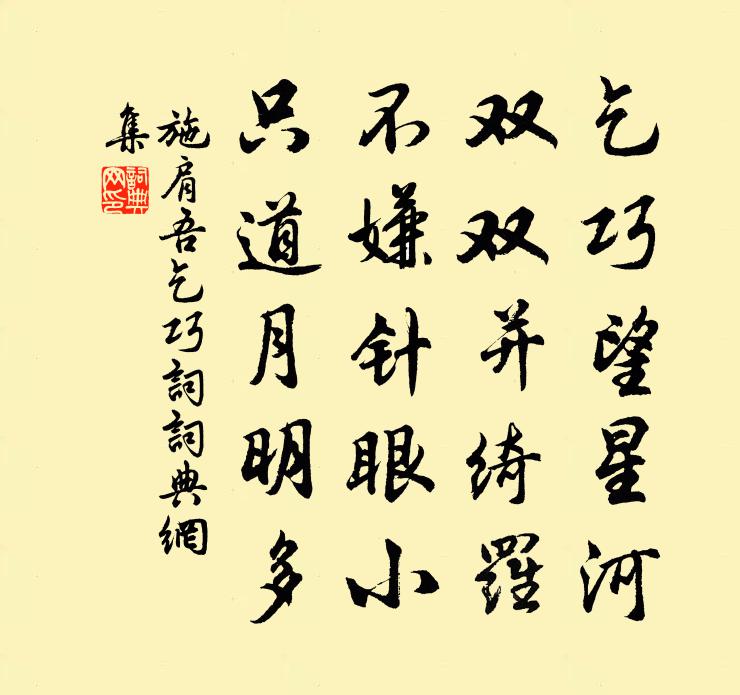 乞巧望星河
双双并绮罗
不嫌针眼小
只道月明多
施肩吾乞巧詞詞典網
集
詞典
网印